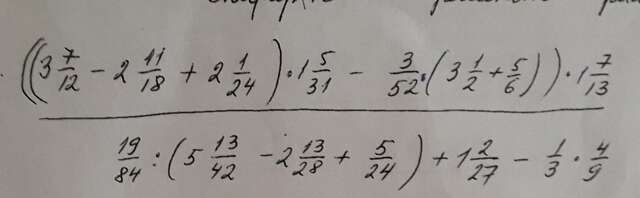 ((3 7/12 - 2 11/18 + 2 1/24) · 1 5/31 - 3/52 · (3 1/2 + 5/6)) · 1 7/13
19/84 : (5 13/42 - 2 13/28 + 5/24) + 1 2/27 - 1/3 · 4/9